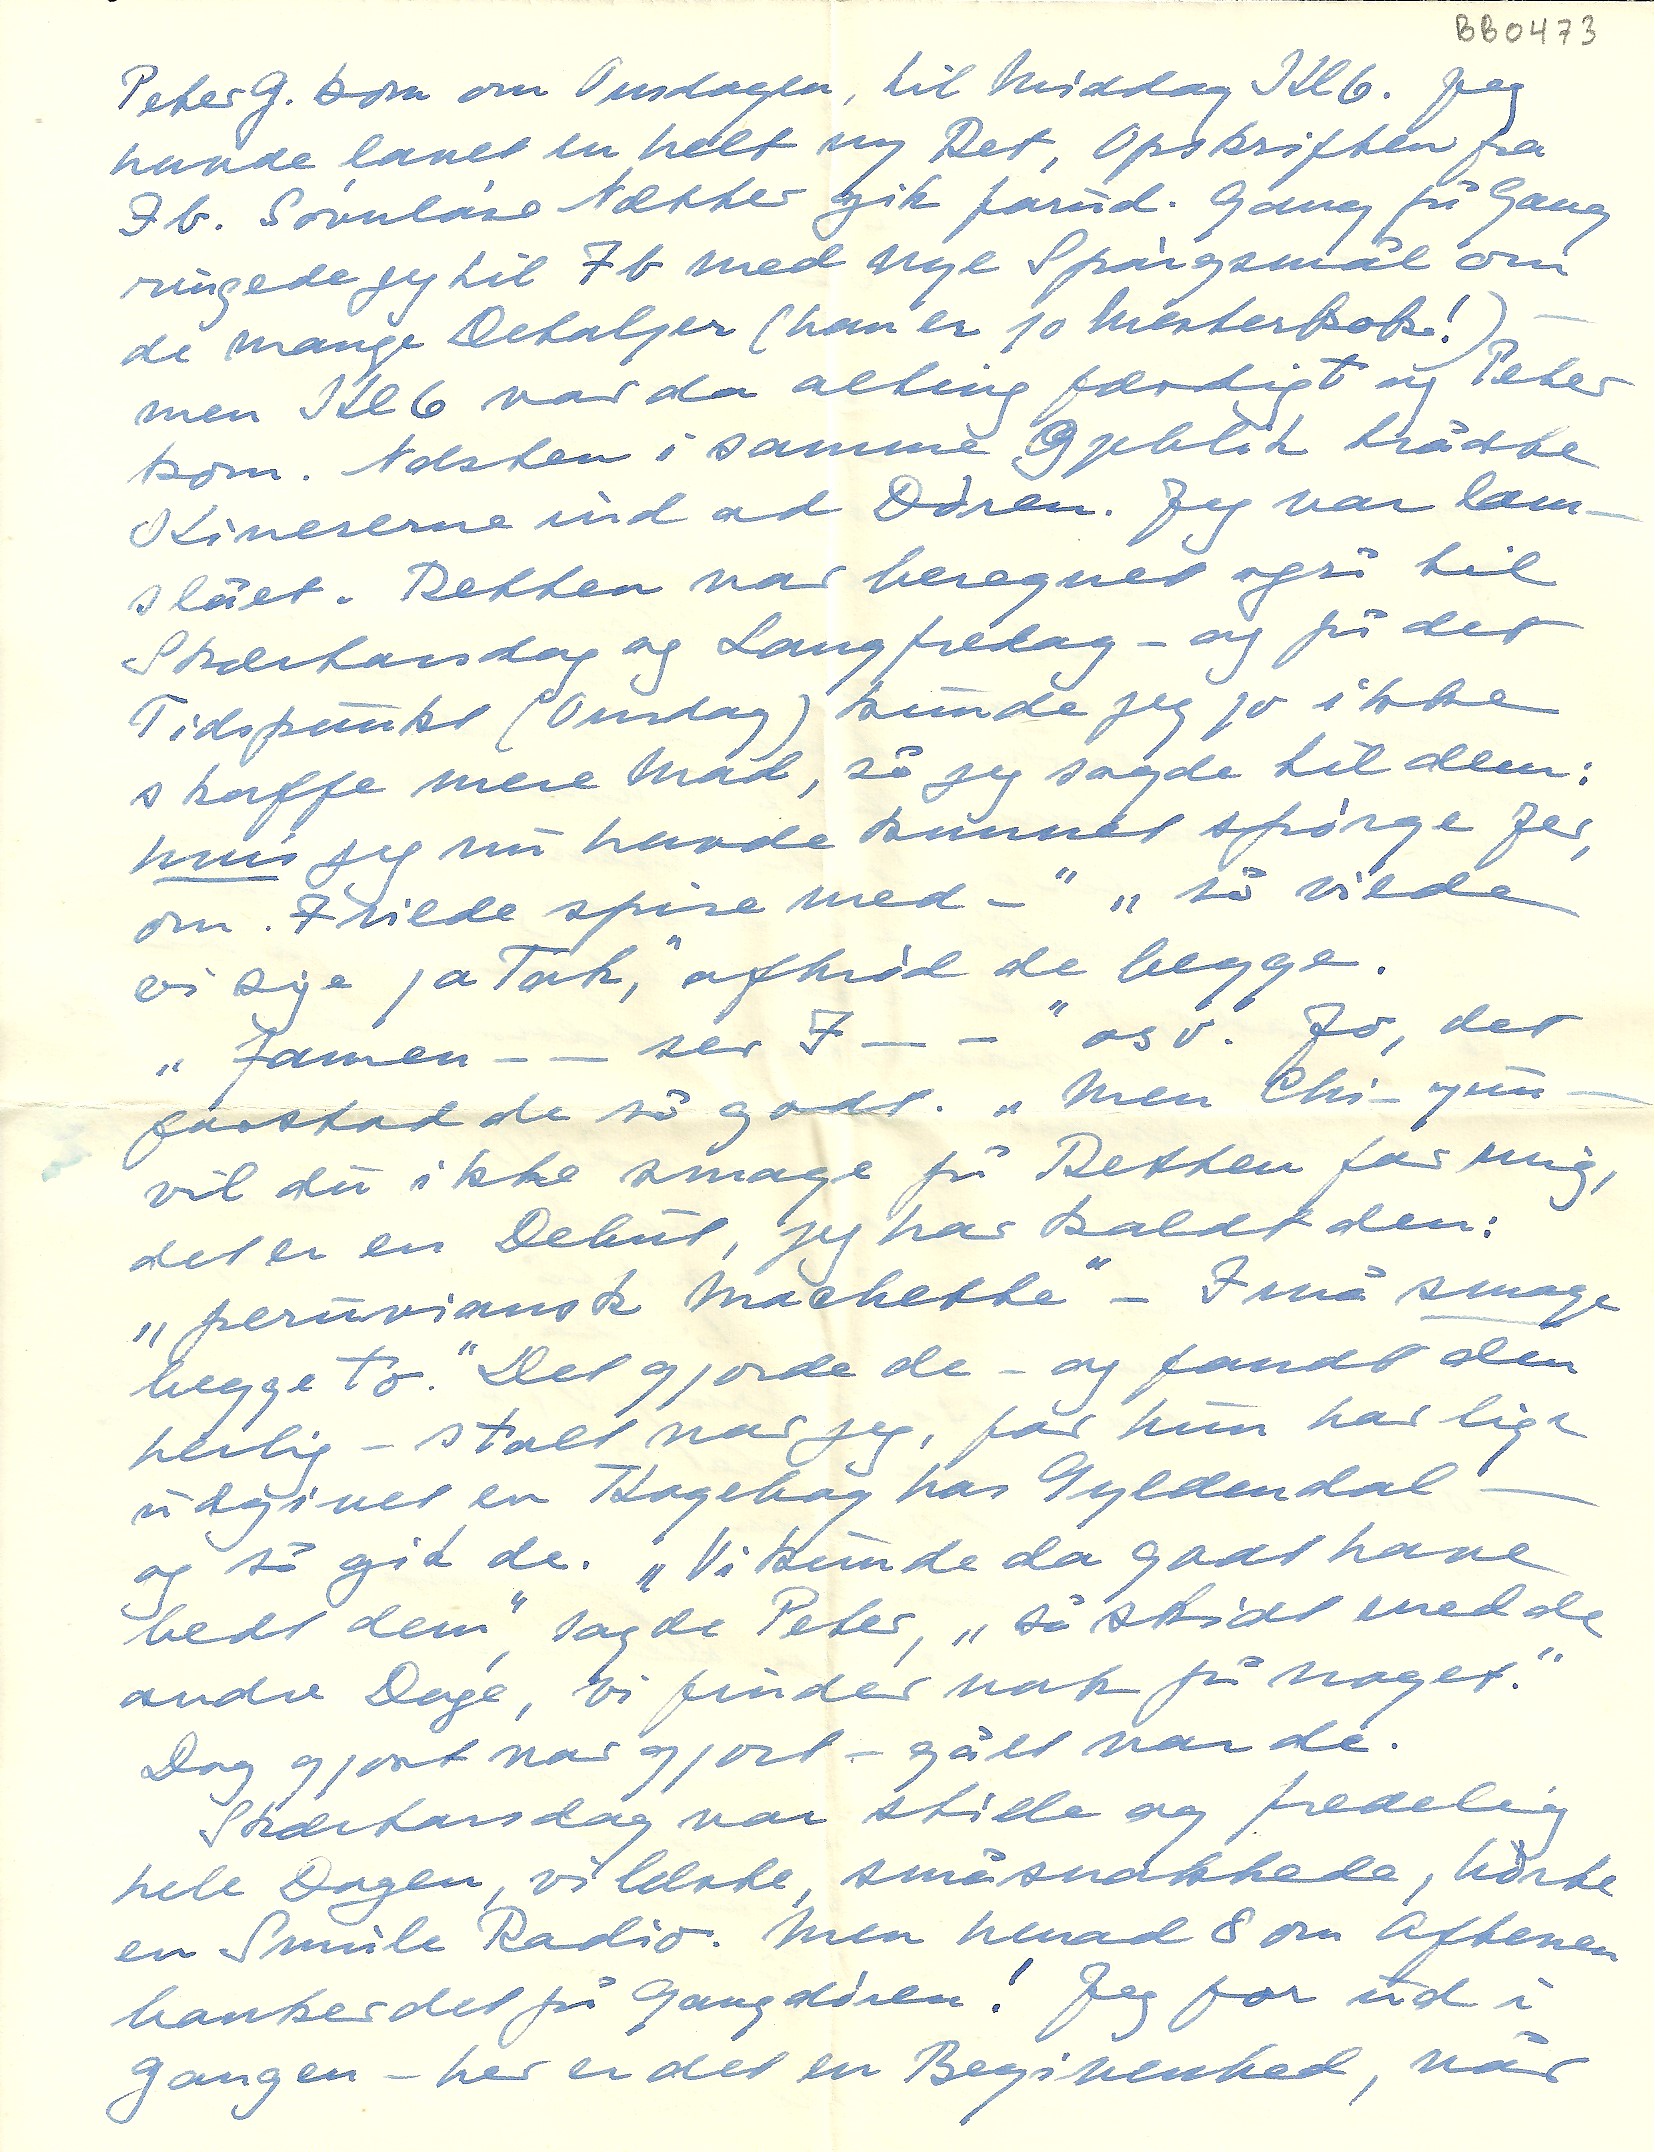 BB0473
Peter G. kom om Onsdagen, til Middag Kl 6. Jeg
havde lavet en helt ny Ret, Opskriften fra
Ib. Søvnløse Nætter gik forud. Gang på Gang
ringede jeg til Ib med nye Spørgsmål om
de mange Detaljer (han er jo Mesterkok!) –
men Kl 6 var da alting færdigt og Peter
kom. Næsten i samme Øjeblik trådte
Kineserne ind ad Døren. Jeg var lam-
slået. Retten var beregnet også til
Skærtorsdag og Langfredag – og på det
Tidspunkt (Onsdag) kunde jeg jo ikke
skaffe mere Mad, så jeg sagde til dem:
hvis jeg nu havde kunnet spørge Jer,
om I vilde spise med – " „ så vilde
vi sige ja Tak," afbrød de begge.
„ Jamen – – ser I – – " osv. Jo, det
forstod de så godt. „ Men Chi-yun –
vil du ikke smage på Retten for mig,
det er en Debut, jeg har kaldt den:
„ peruviansk Machette" – I må smage
begge to." Det gjorde de – og fandt den
herlig – stolt var jeg, for hun har lige
udgivet en Kogebog hos Gyldendal –
og så gik de. „ Vi kunde da godt have
bedt dem", sagde Peter, „ så skidt med de
andre Dage, vi finder nok på noget."
Dog gjort var gjort – gået var de.
Skærtorsdag var stille og fredelig
hele Dagen, vi læste, småsnakkede, hørte
en Smule Radio. Men henad 8 om Aftenen
banker det på Gangdøren! Jeg for ud i
Gangen – her er det en Begivenhed, når